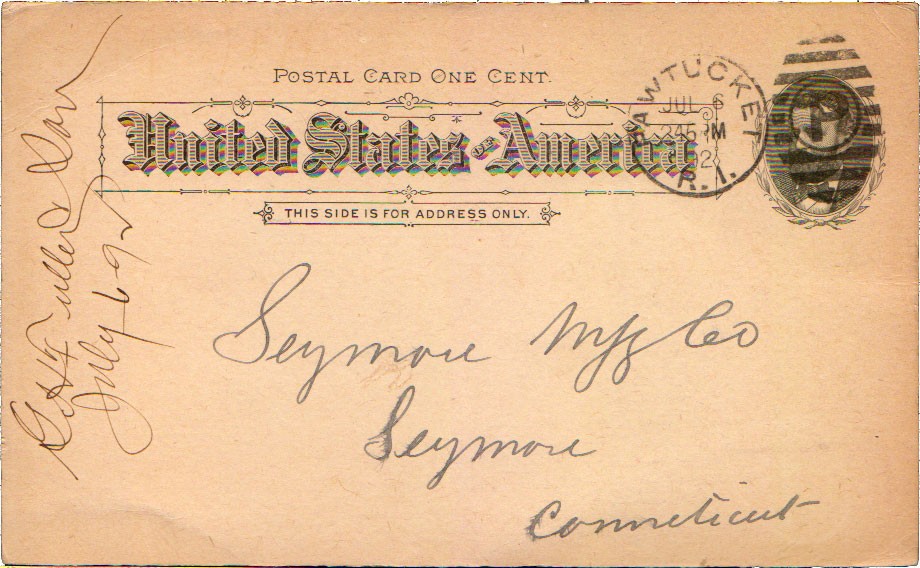 POSTAL CARD ONE CENT.
United States of America
THIS SIDE IS FOR ADDRESS ONLY.
PAWTUCKET
JUL 6
245PM
92
R.I.
Seymore Mfg Co
Seymore
Connecticut
G H Fuller & Son
July 6 92